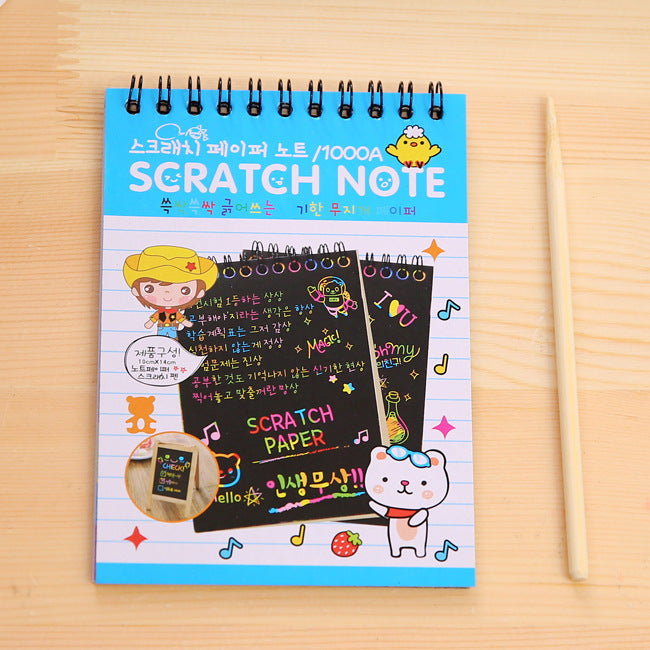 스크래치 페이퍼 노트 /1000A
SCRATCH NOTE
쓱싹쓱싹 긁어쓰는 기한 무지개 페이퍼
1등하는 상상
공부해야지라는 생각은 항상
학습계획표는 그저 감상
실천하지 않는게 정상
시험문제는 진상
공부한 것도 기억나지 않는 신기한 현상
찍어놓고 맞출꺼란 망상
Magic!
SCRATCH
PAPER
Hello
인생무상!!
I U
Oh my
친구
제품구성!
10cmX14cm
노트페이퍼
스크래치 펜
CHECK!